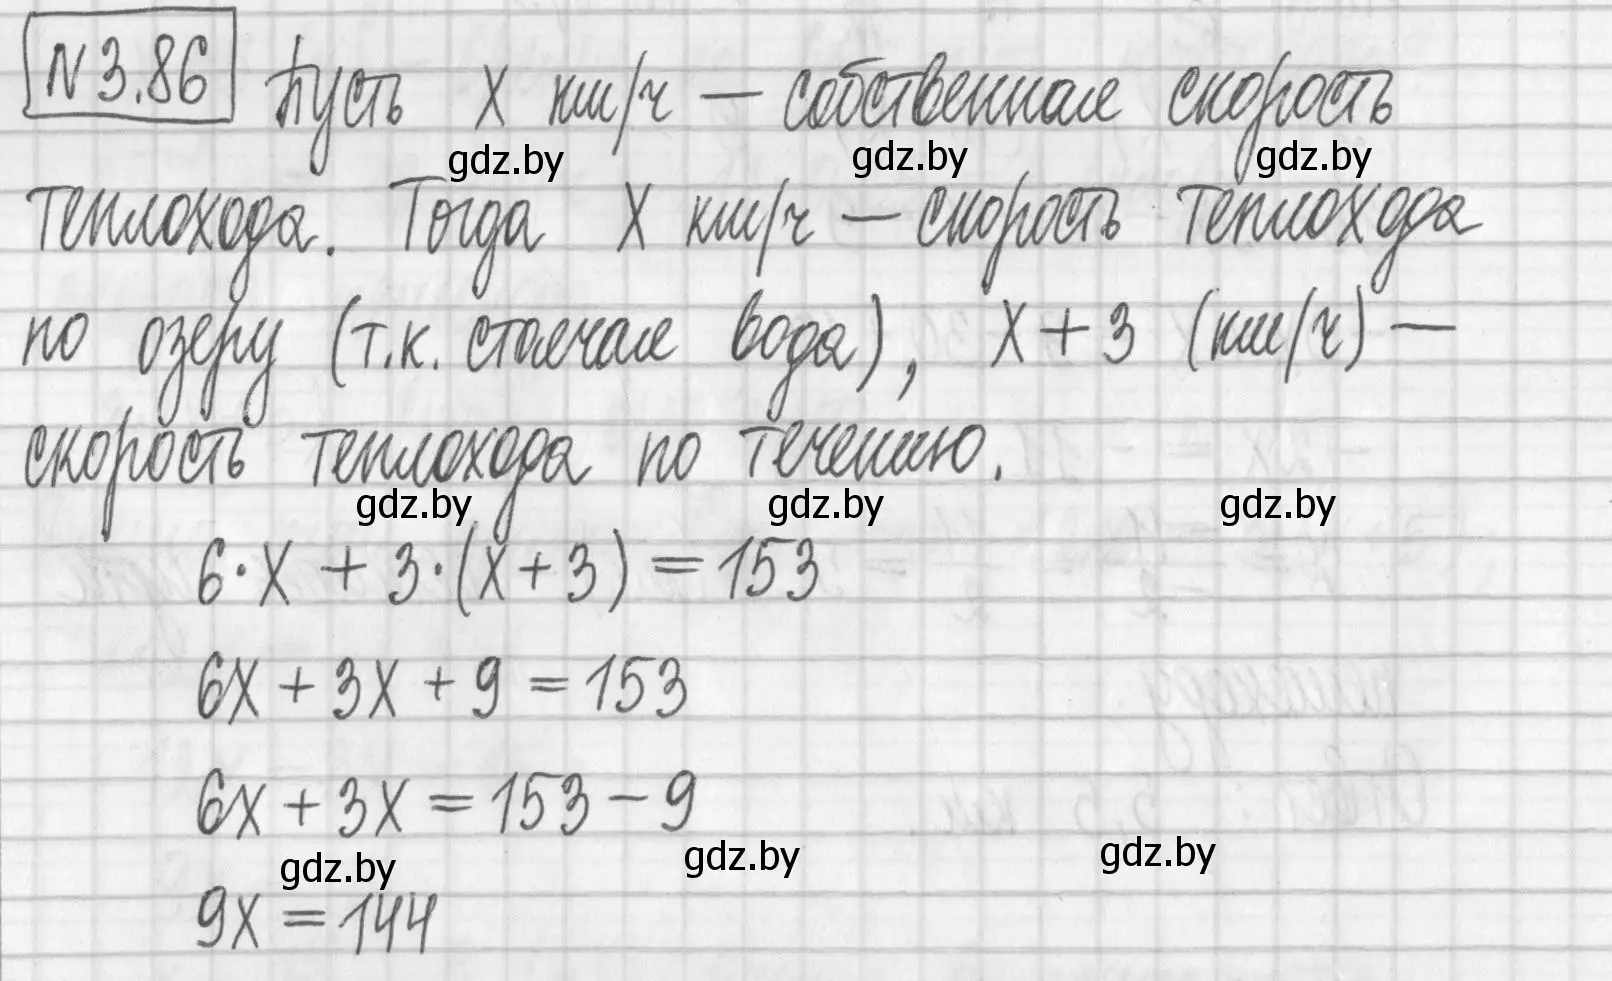 N 3.86 Пусть x км/ч — собственная скорость
gdz.by gdz.by gdz.by
теплохода. Тогда x км/ч — скорость теплохода
по озеру (т.к. стоячая вода), x + 3 (км/ч) —
скорость теплохода по течению.
gdz.by gdz.by gdz.by
6·x + 3·(x+3) = 153
6x + 3x + 9 = 153
6x + 3x = 153 - 9
gdz.by gdz.by gdz.by
9x = 144